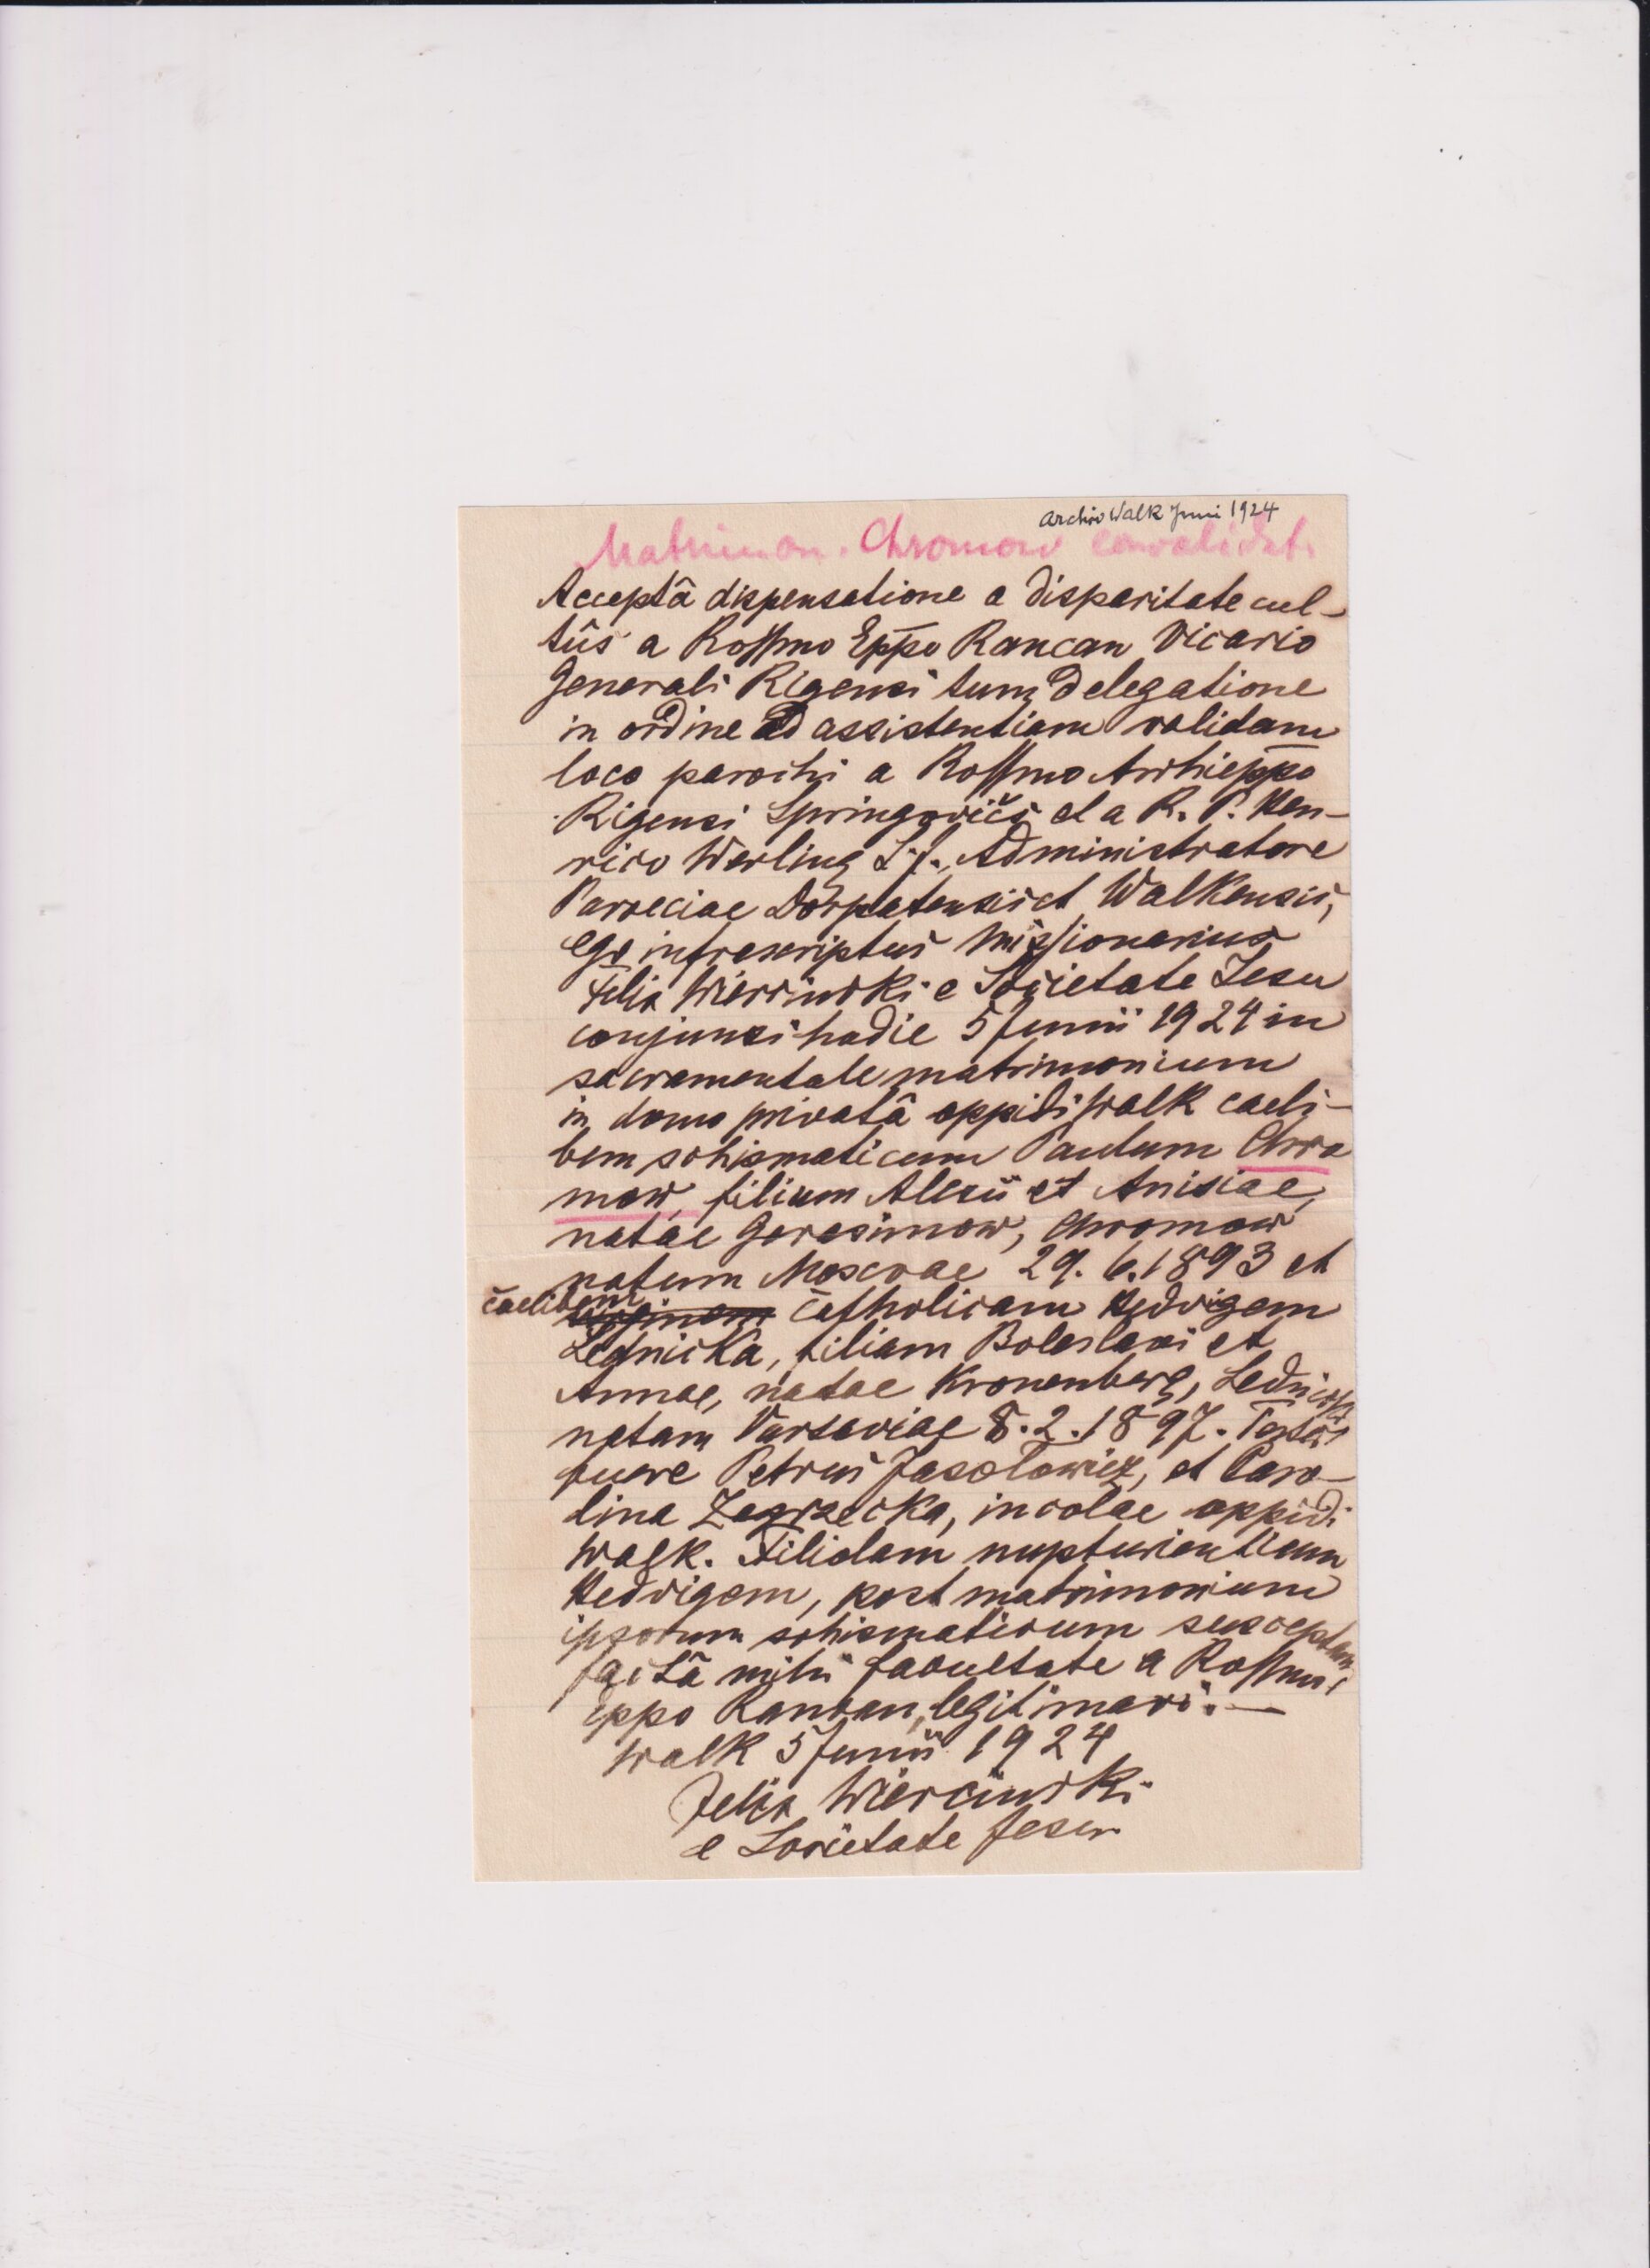 Archiv Walk Juni 1924
Matrimon. Chromow convalidat.
Acceptâ dispensatione a disparitate cul-
tûs a Rossmo Eppo Rancan Vicario
Generali Rigensi tum delegatione
in ordine ad assistentiam validam
loco parochi a Rossmo Archieppo
Rigensi Springovičs et a R. P. Hen-
rico Werling S.J., Administratore
Paroeciae Dorpatensis et Walkensis,
ego infrascriptus Missionarius
Felix Wiercinski e Societate Jesu
conjunxi hodie 5 Junii 1924 in
sacramentale matrimonium
in domo privatâ oppidi Walk caeli-
bem schismaticum Paulum Chro
mow, filium Alexii et Anisiae,
natae Gerasimow, Chromow
natum Moscvae 29. 6. 1893 et
caelibem virginem catholicam Hedvigem
Lednicka, filiam Boleslavi et
Annae, natae Kronenberg, Lednicka
natam Varsaviae 8. 2. 1897. Testes
fuere Petrus Jasołowicz, et Caro-
lina Zagrzecka, incolae oppidi
Walk. Filiolam nupturientium
Hedvigem, post matrimonium
ipsorum schismaticum susceptam,
factâ mihi facultate a Rossmo
Eppo Rancan, legitimavi. —
Walk 5 Junii 1924
Felix Wiercinski
e Societate Jesu